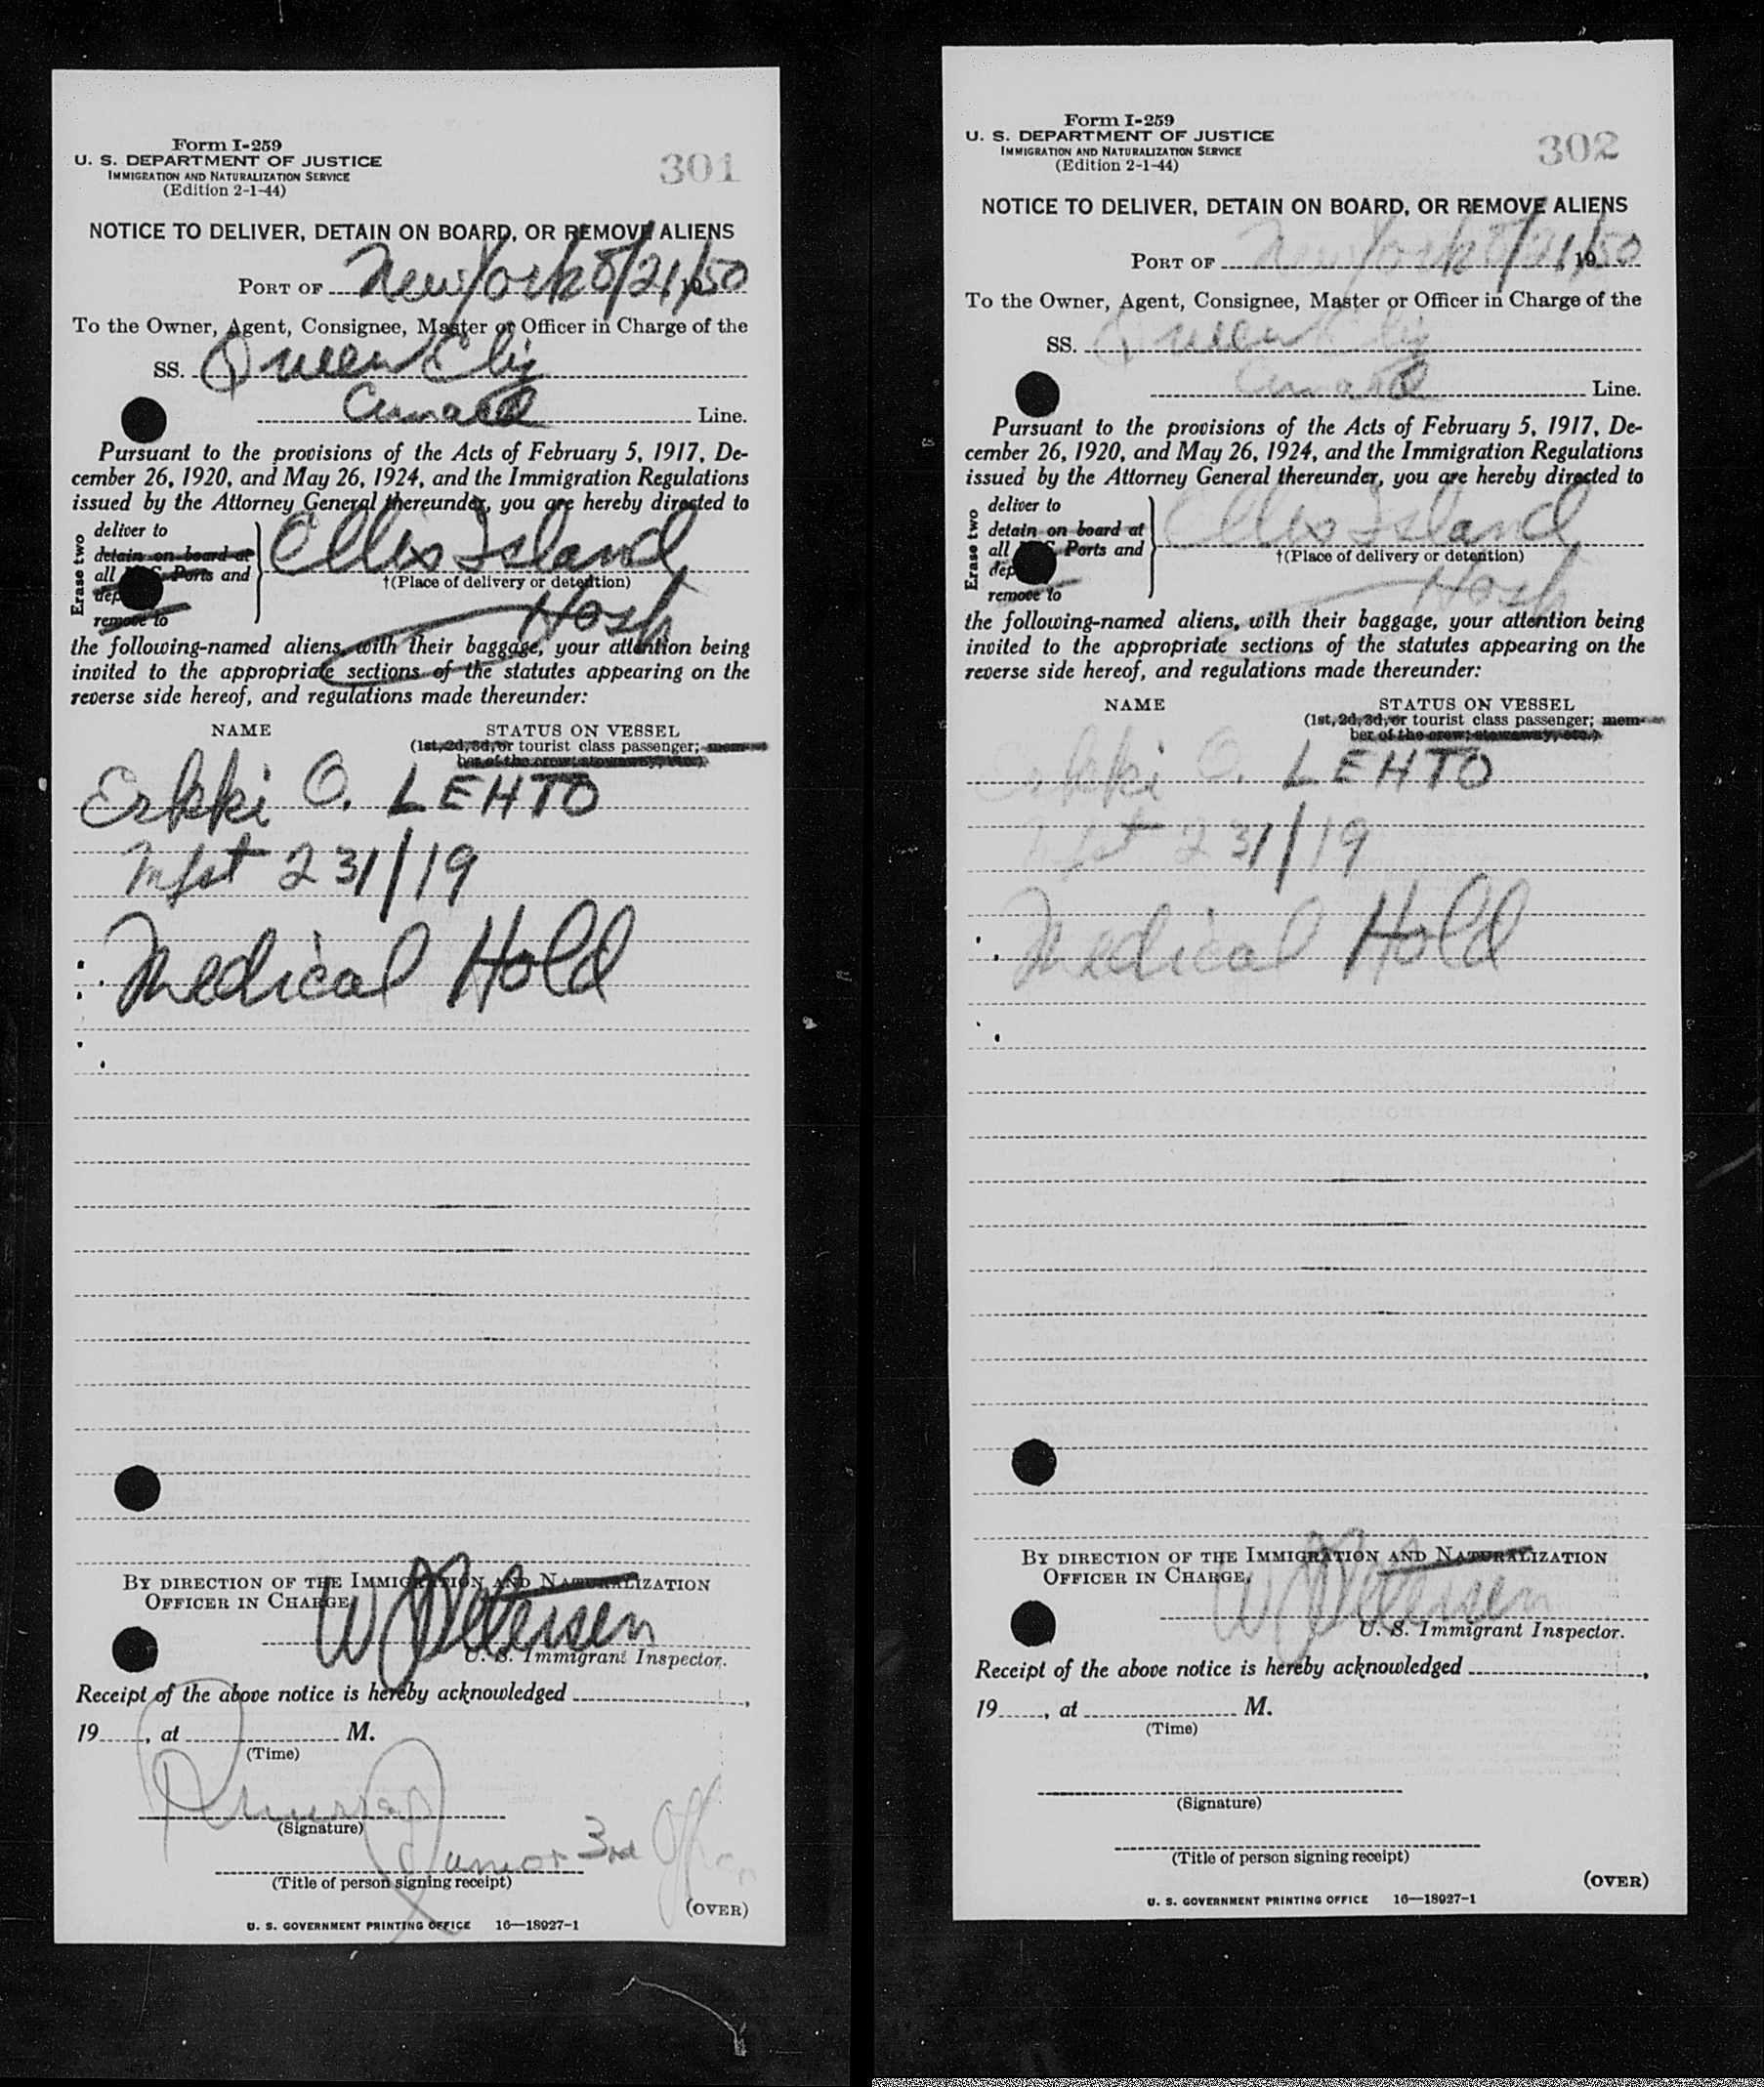 Form I-259
U. S. DEPARTMENT OF JUSTICE
IMMIGRATION AND NATURALIZATION SERVICE
(Edition 2-1-44)
301
NOTICE TO DELIVER, DETAIN ON BOARD, OR REMOVE ALIENS
PORT OF New York 8/21, 1950
To the Owner, Agent, Consignee, Master or Officer in Charge of the
SS. Queen Eliz
Cunard Line.
Pursuant to the provisions of the Acts of February 5, 1917, De-
cember 26, 1920, and May 26, 1924, and the Immigration Regulations
issued by the Attorney General thereunder, you are hereby directed to
Erase two
deliver to
detain on board at
all Ports and
dep
remove to
Ellis Island
†(Place of delivery or detention)
Hosp
the following-named aliens, with their baggage, your attention being
invited to the appropriate sections of the statutes appearing on the
reverse side hereof, and regulations made thereunder:
NAME STATUS ON VESSEL
(1st, 2d, 3d, or tourist class passenger; mem-
ber of the crew; stowaway, etc.)
Erkki O. LEHTO
Mfst 231/19
Medical Hold
BY DIRECTION OF THE IMMIGRATION AND NATURALIZATION
OFFICER IN CHARGE,
W Petersen
U. S. Immigrant Inspector.
Receipt of the above notice is hereby acknowledged
19, at M.
(Time)
(Signature)
Junior 3rd Off
(Title of person signing receipt)
(OVER)
U. S. GOVERNMENT PRINTING OFFICE 16—18927-1
Form I-259
U. S. DEPARTMENT OF JUSTICE
IMMIGRATION AND NATURALIZATION SERVICE
(Edition 2-1-44)
302
NOTICE TO DELIVER, DETAIN ON BOARD, OR REMOVE ALIENS
PORT OF New York 8/21, 1950
To the Owner, Agent, Consignee, Master or Officer in Charge of the
SS. Queen Eliz
Cunard Line.
Pursuant to the provisions of the Acts of February 5, 1917, De-
cember 26, 1920, and May 26, 1924, and the Immigration Regulations
issued by the Attorney General thereunder, you are hereby directed to
Erase two
deliver to
detain on board at
all Ports and
dep
remove to
Ellis Island
†(Place of delivery or detention)
Hosp
the following-named aliens, with their baggage, your attention being
invited to the appropriate sections of the statutes appearing on the
reverse side hereof, and regulations made thereunder:
NAME STATUS ON VESSEL
(1st, 2d, 3d, or tourist class passenger; mem-
ber of the crew; stowaway, etc.)
Erkki O. LEHTO
Mfst 231/19
Medical Hold
BY DIRECTION OF THE IMMIGRATION AND NATURALIZATION
OFFICER IN CHARGE,
W Petersen
U. S. Immigrant Inspector.
Receipt of the above notice is hereby acknowledged
19, at M.
(Time)
(Signature)
(Title of person signing receipt)
(OVER)
U. S. GOVERNMENT PRINTING OFFICE 16—18927-1